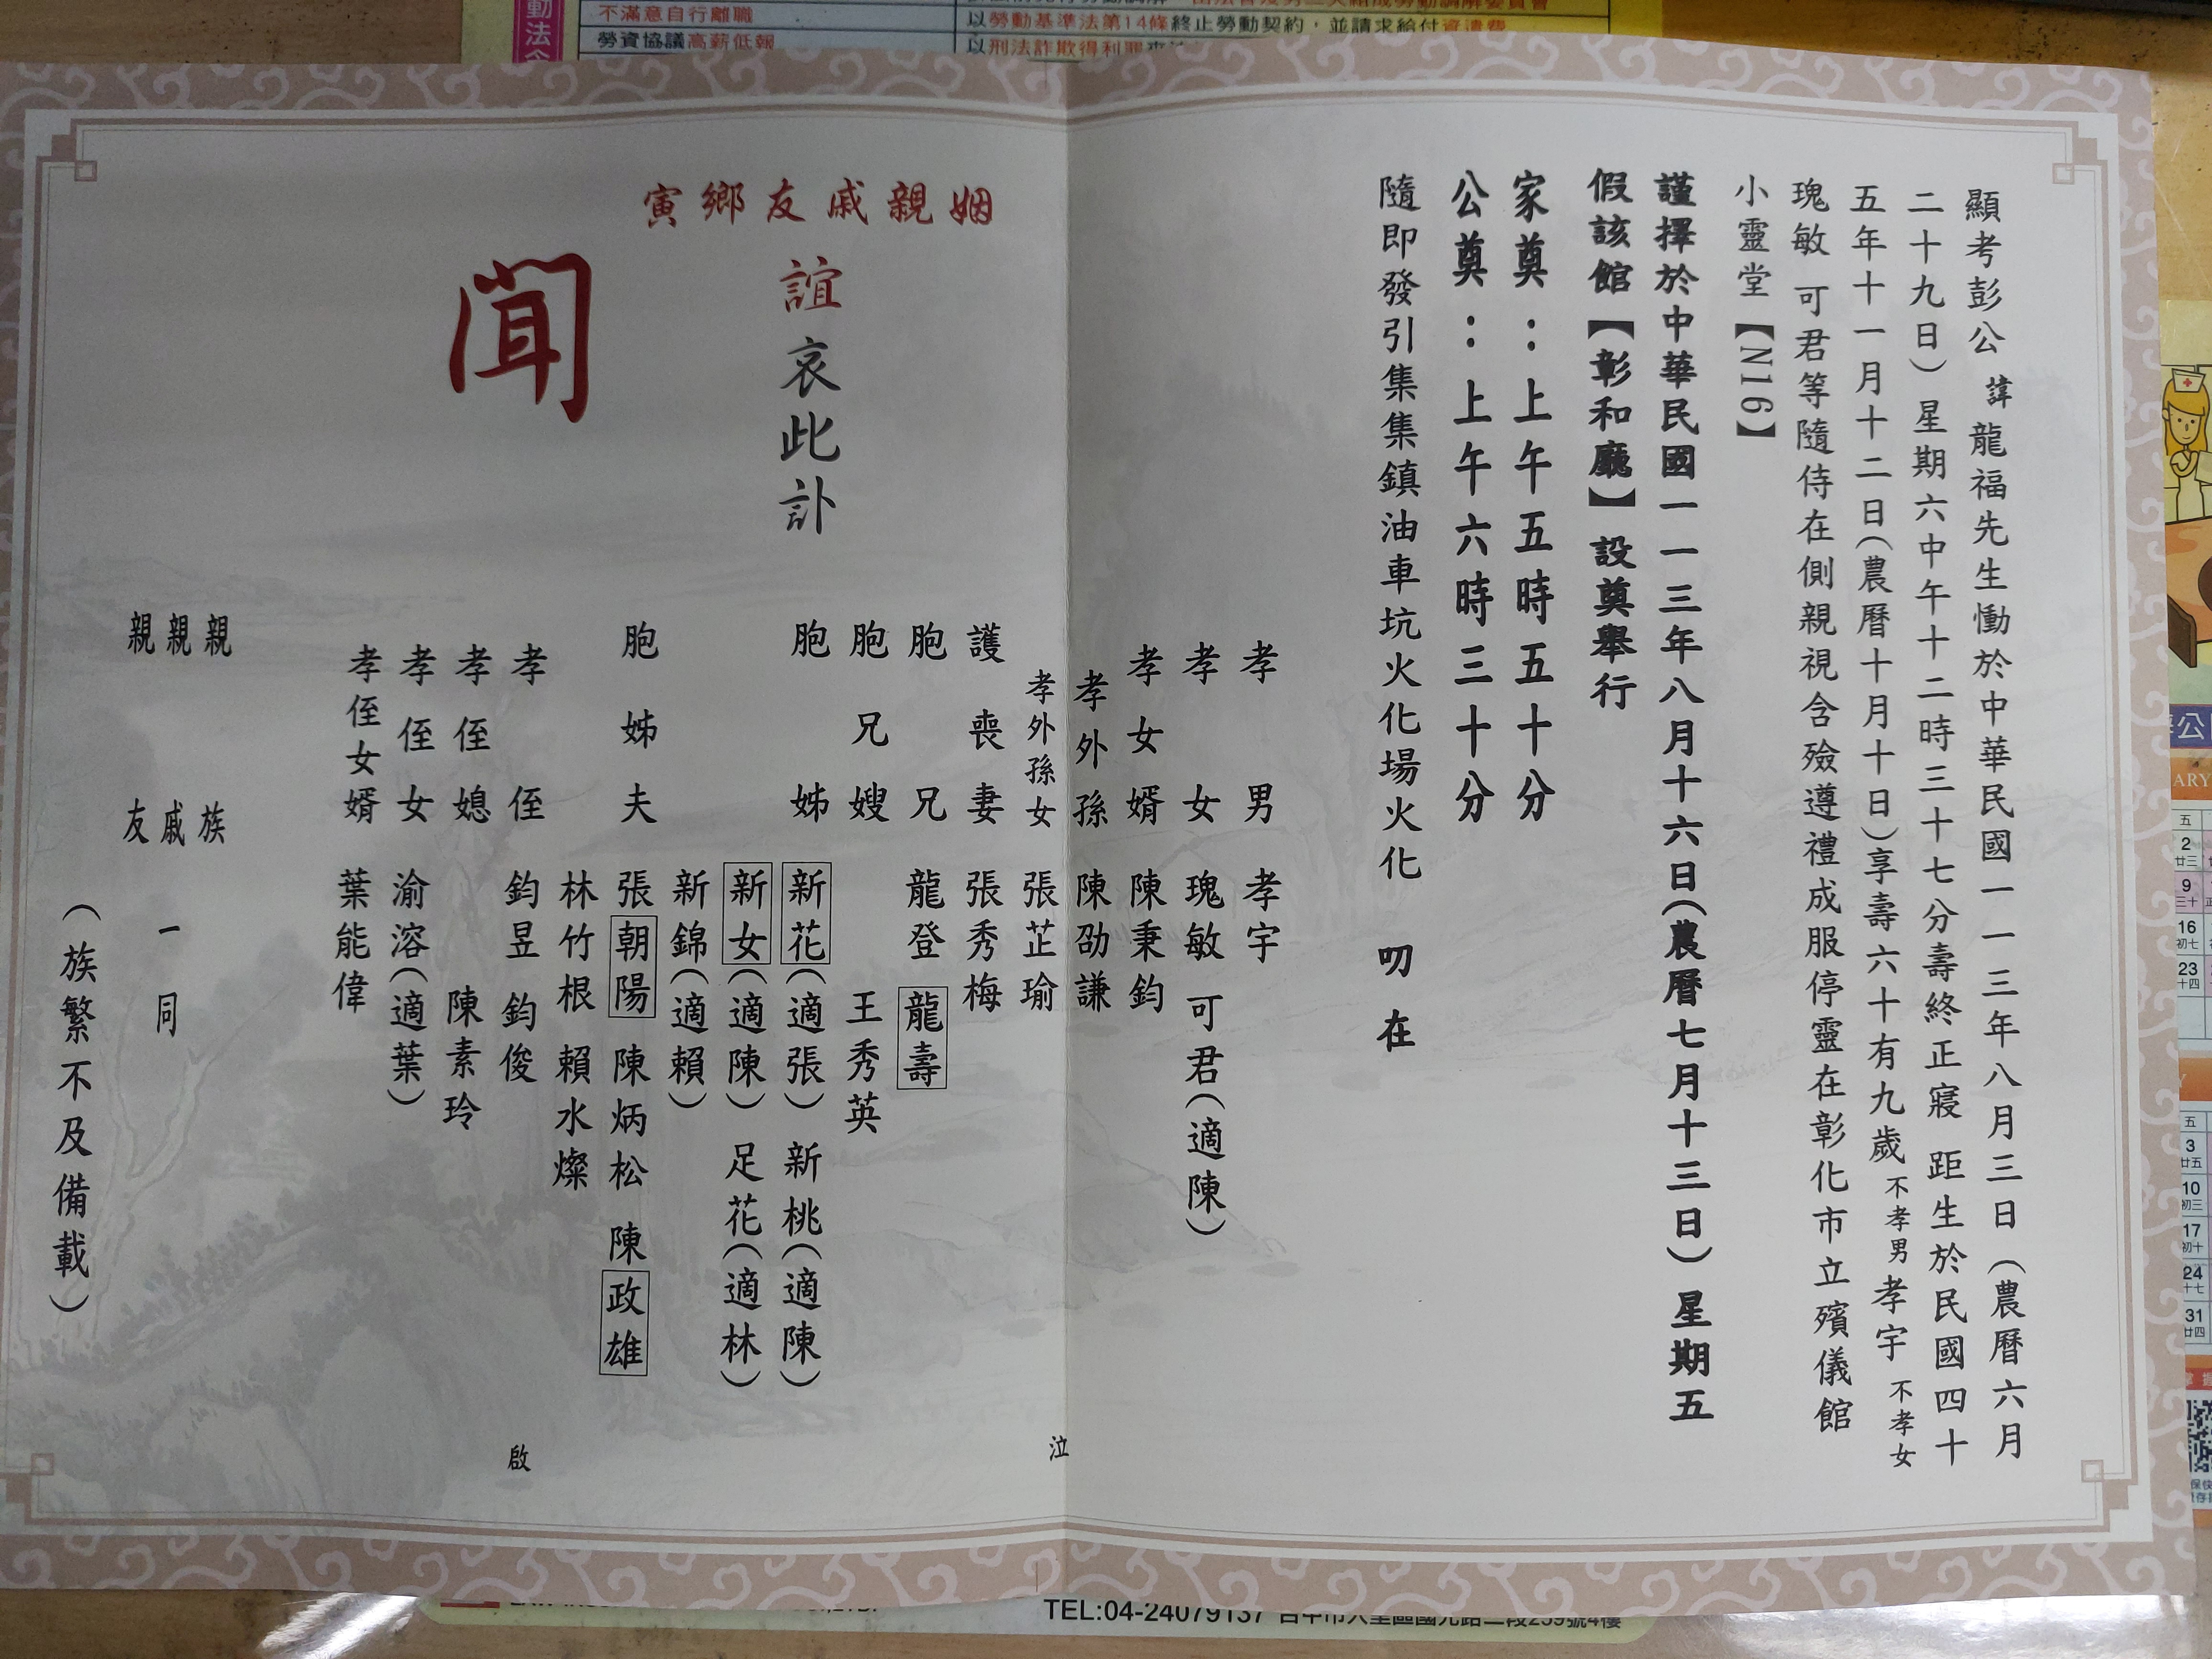 顯考彭公 諱龍福先生慟於中華民國一一三年八月三日（農曆六月
二十九日）星期六中午十二時三十七分壽終正寢 距生於民國四十
五年十一月十二日（農曆十月十日）享壽六十有九歲 不孝男 孝宇 不孝女
瑰敏 可君等隨侍在側親視含殮遵禮成服停靈在彰化市立殯儀館
小靈堂【N16】
謹擇於中華民國一一三年八月十六日（農曆七月十三日）星期五
假該館【彰和廳】設奠舉行
家奠：上午五時五十分
公奠：上午六時三十分
隨即發引集集鎮油車坑火化場火化 叨在
姻親戚友鄉寅
誼哀此訃
聞
孝男 孝宇
孝女 瑰敏 可君（適陳）
孝女婿 陳秉鈞
孝外孫 陳劭謙
孝外孫女 張芷瑜
護喪妻 張秀梅
胞兄 龍登 龍壽
胞兄嫂 王秀英
胞姊 新花（適張） 新桃（適陳）
新女（適陳） 足花（適林）
新錦（適賴）
胞姊夫 張朝陽 陳炳松 陳政雄
林竹根 賴水燦
孝侄 鈞昱 鈞俊
孝侄媳 陳素玲
孝侄女 渝溶（適葉）
孝侄女婿 葉能偉
泣
啟
親族
親戚 一同
親友
（族繁不及備載）
不滿意自行離職
勞資協議高薪低報
以勞動基準法第14條終止勞動契約，並請求給付資遣費
以刑法詐欺得利罪
動法
公
ARY
五
2
廿三
9
三十
16
初七
23
十四
五
3
廿五
10
初三
17
初十
24
十七
31
廿四
TEL:04-24079137